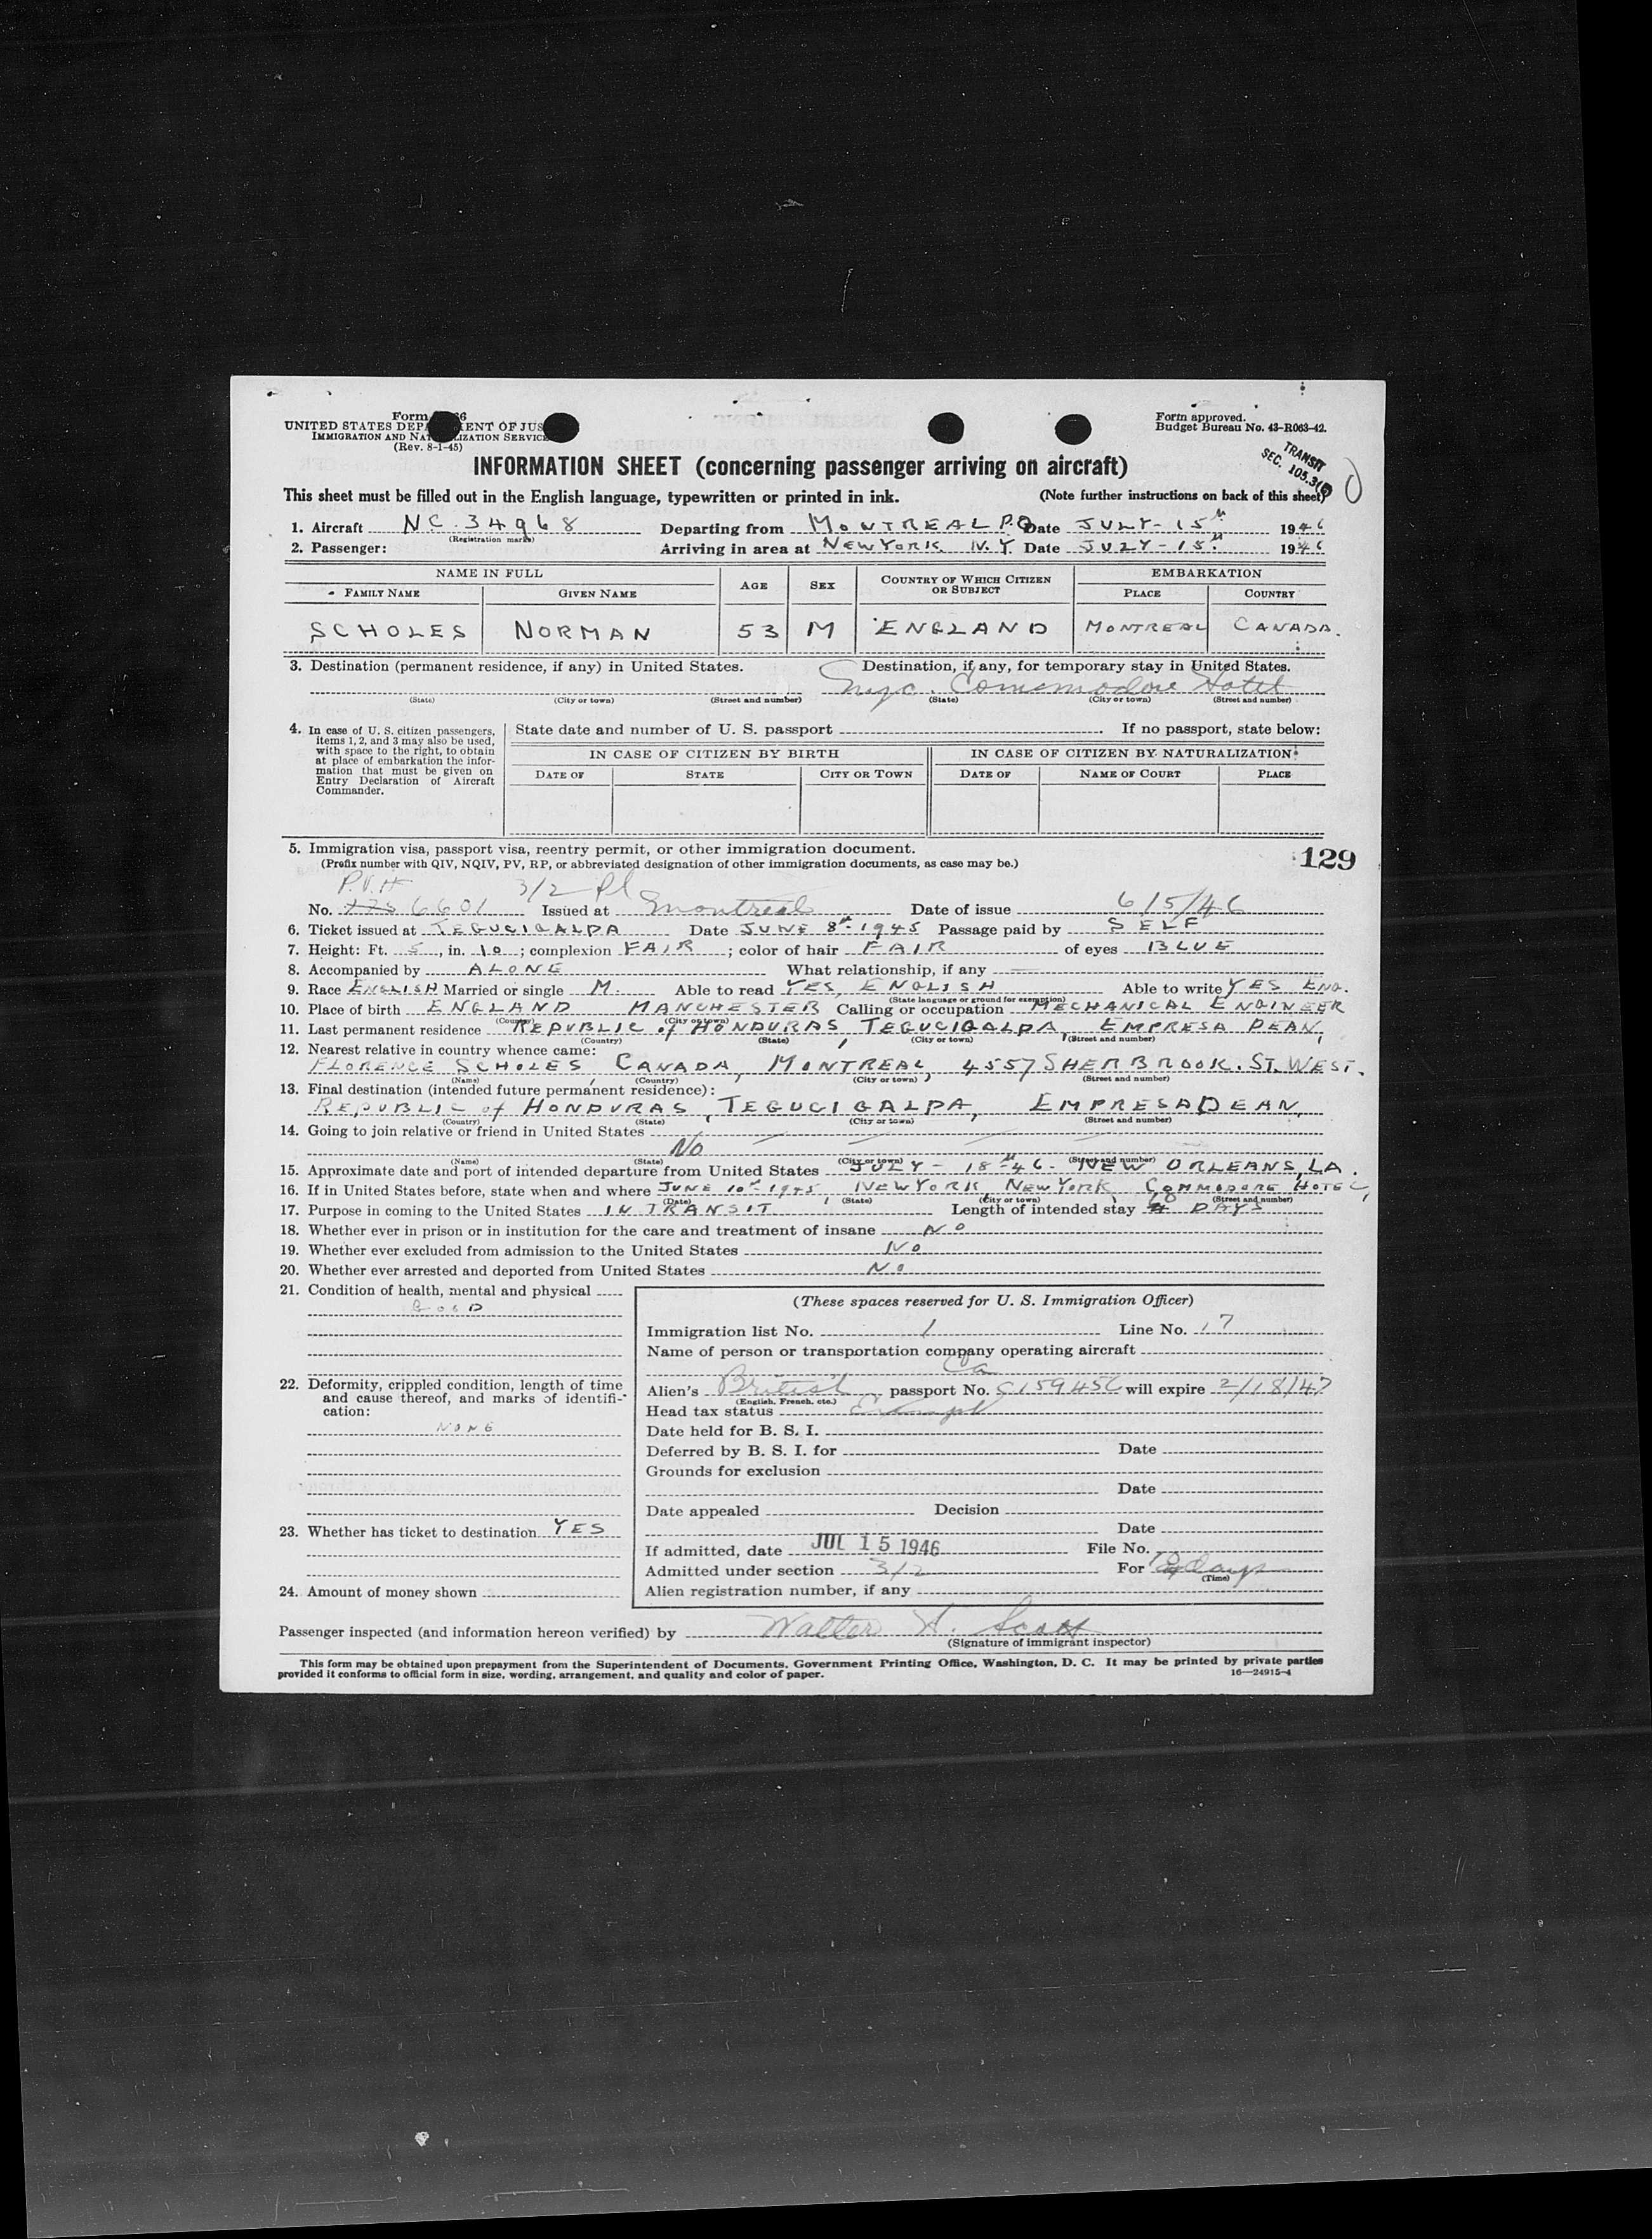 Form 66
UNITED STATES DEPA ENT OF JUS
IMMIGRATION AND NAT LIZATION SERVICE
(Rev. 8-1-45)
Form approved.
Budget Bureau No. 43-R063-42.
TRANSIT
SEC. 105.3(
INFORMATION SHEET (concerning passenger arriving on aircraft)
This sheet must be filled out in the English language, typewritten or printed in ink. (Note further instructions on back of this sheet)
1. Aircraft NC. 34968 Departing from MONTREAL P.Q Date JULY - 15th 1946
(Registration marks)
2. Passenger: Arriving in area at NEW YORK. N.Y. Date JULY - 15th 1946
NAME IN FULL AGE SEX COUNTRY OF WHICH CITIZEN OR SUBJECT EMBARKATION
FAMILY NAME GIVEN NAME PLACE COUNTRY
SCHOLES NORMAN 53 M ENGLAND MONTREAL CANADA.
3. Destination (permanent residence, if any) in United States. Destination, if any, for temporary stay in United States.
nyc. Commodore Hotel
(State) (City or town) (Street and number) (State) (City or town) (Street and number)
4. In case of U. S. citizen passengers, items 1, 2, and 3 may also be used, with space to the right, to obtain at place of embarkation the information that must be given on Entry Declaration of Aircraft Commander.
State date and number of U. S. passport If no passport, state below:
IN CASE OF CITIZEN BY BIRTH IN CASE OF CITIZEN BY NATURALIZATION
DATE OF STATE CITY OR TOWN DATE OF NAME OF COURT PLACE
5. Immigration visa, passport visa, reentry permit, or other immigration document.
(Prefix number with QIV, NQIV, PV, RP, or abbreviated designation of other immigration documents, as case may be.)
129
P.V. # 3/2 Pl
No. 6601 Issued at Montreal Date of issue 6/5/46
6. Ticket issued at TEGUCIGALPA Date JUNE 8th 1945 Passage paid by SELF
7. Height: Ft. 5, in. 10; complexion FAIR; color of hair FAIR of eyes BLUE
8. Accompanied by ALONE What relationship, if any —
9. Race ENGLISH Married or single M. Able to read YES, ENGLISH Able to write YES ENG.
(State language or ground for exemption)
10. Place of birth ENGLAND MANCHESTER Calling or occupation MECHANICAL ENGINEER
(Country) (City or town)
11. Last permanent residence REPUBLIC of HONDURAS, TEGUCIGALPA, EMPRESA DEAN,
(Country) (State) (City or town) (Street and number)
12. Nearest relative in country whence came:
FLORENCE SCHOLES, CANADA, MONTREAL, 4557 SHERBROOK. ST. WEST.
(Name) (Country) (City or town) (Street and number)
13. Final destination (intended future permanent residence):
REPUBLIC of HONDURAS, TEGUCIGALPA, EMPRESA DEAN,
(Country) (State) (City or town) (Street and number)
14. Going to join relative or friend in United States
No
(Name) (State) (City or town) (Street and number)
15. Approximate date and port of intended departure from United States JULY - 18th 46. NEW ORLEANS, LA.
16. If in United States before, state when and where JUNE 10th 1945, NEW YORK, NEW YORK, COMMODORE HOTEL,
(Date) (State) (City or town) (Street and number)
17. Purpose in coming to the United States IN TRANSIT Length of intended stay DAYS
18. Whether ever in prison or in institution for the care and treatment of insane No
19. Whether ever excluded from admission to the United States No
20. Whether ever arrested and deported from United States No
21. Condition of health, mental and physical
GOOD
22. Deformity, crippled condition, length of time and cause thereof, and marks of identification:
NONE
23. Whether has ticket to destination YES
24. Amount of money shown
(These spaces reserved for U. S. Immigration Officer)
Immigration list No. 1 Line No. 17
Name of person or transportation company operating aircraft
Ca
Alien's British passport No. C159456 will expire 2/18/47
(English, French, etc.)
Head tax status Exempt
Date held for B. S. I.
Deferred by B. S. I. for Date
Grounds for exclusion
Date
Date appealed Decision
Date
If admitted, date JUL 15 1946 File No.
Admitted under section 3/2 For days
(Time)
Alien registration number, if any
Passenger inspected (and information hereon verified) by Walter H. Scott
(Signature of immigrant inspector)
This form may be obtained upon prepayment from the Superintendent of Documents, Government Printing Office, Washington, D. C. It may be printed by private parties
provided it conforms to official form in size, wording, arrangement, and quality and color of paper. 16—24915-4